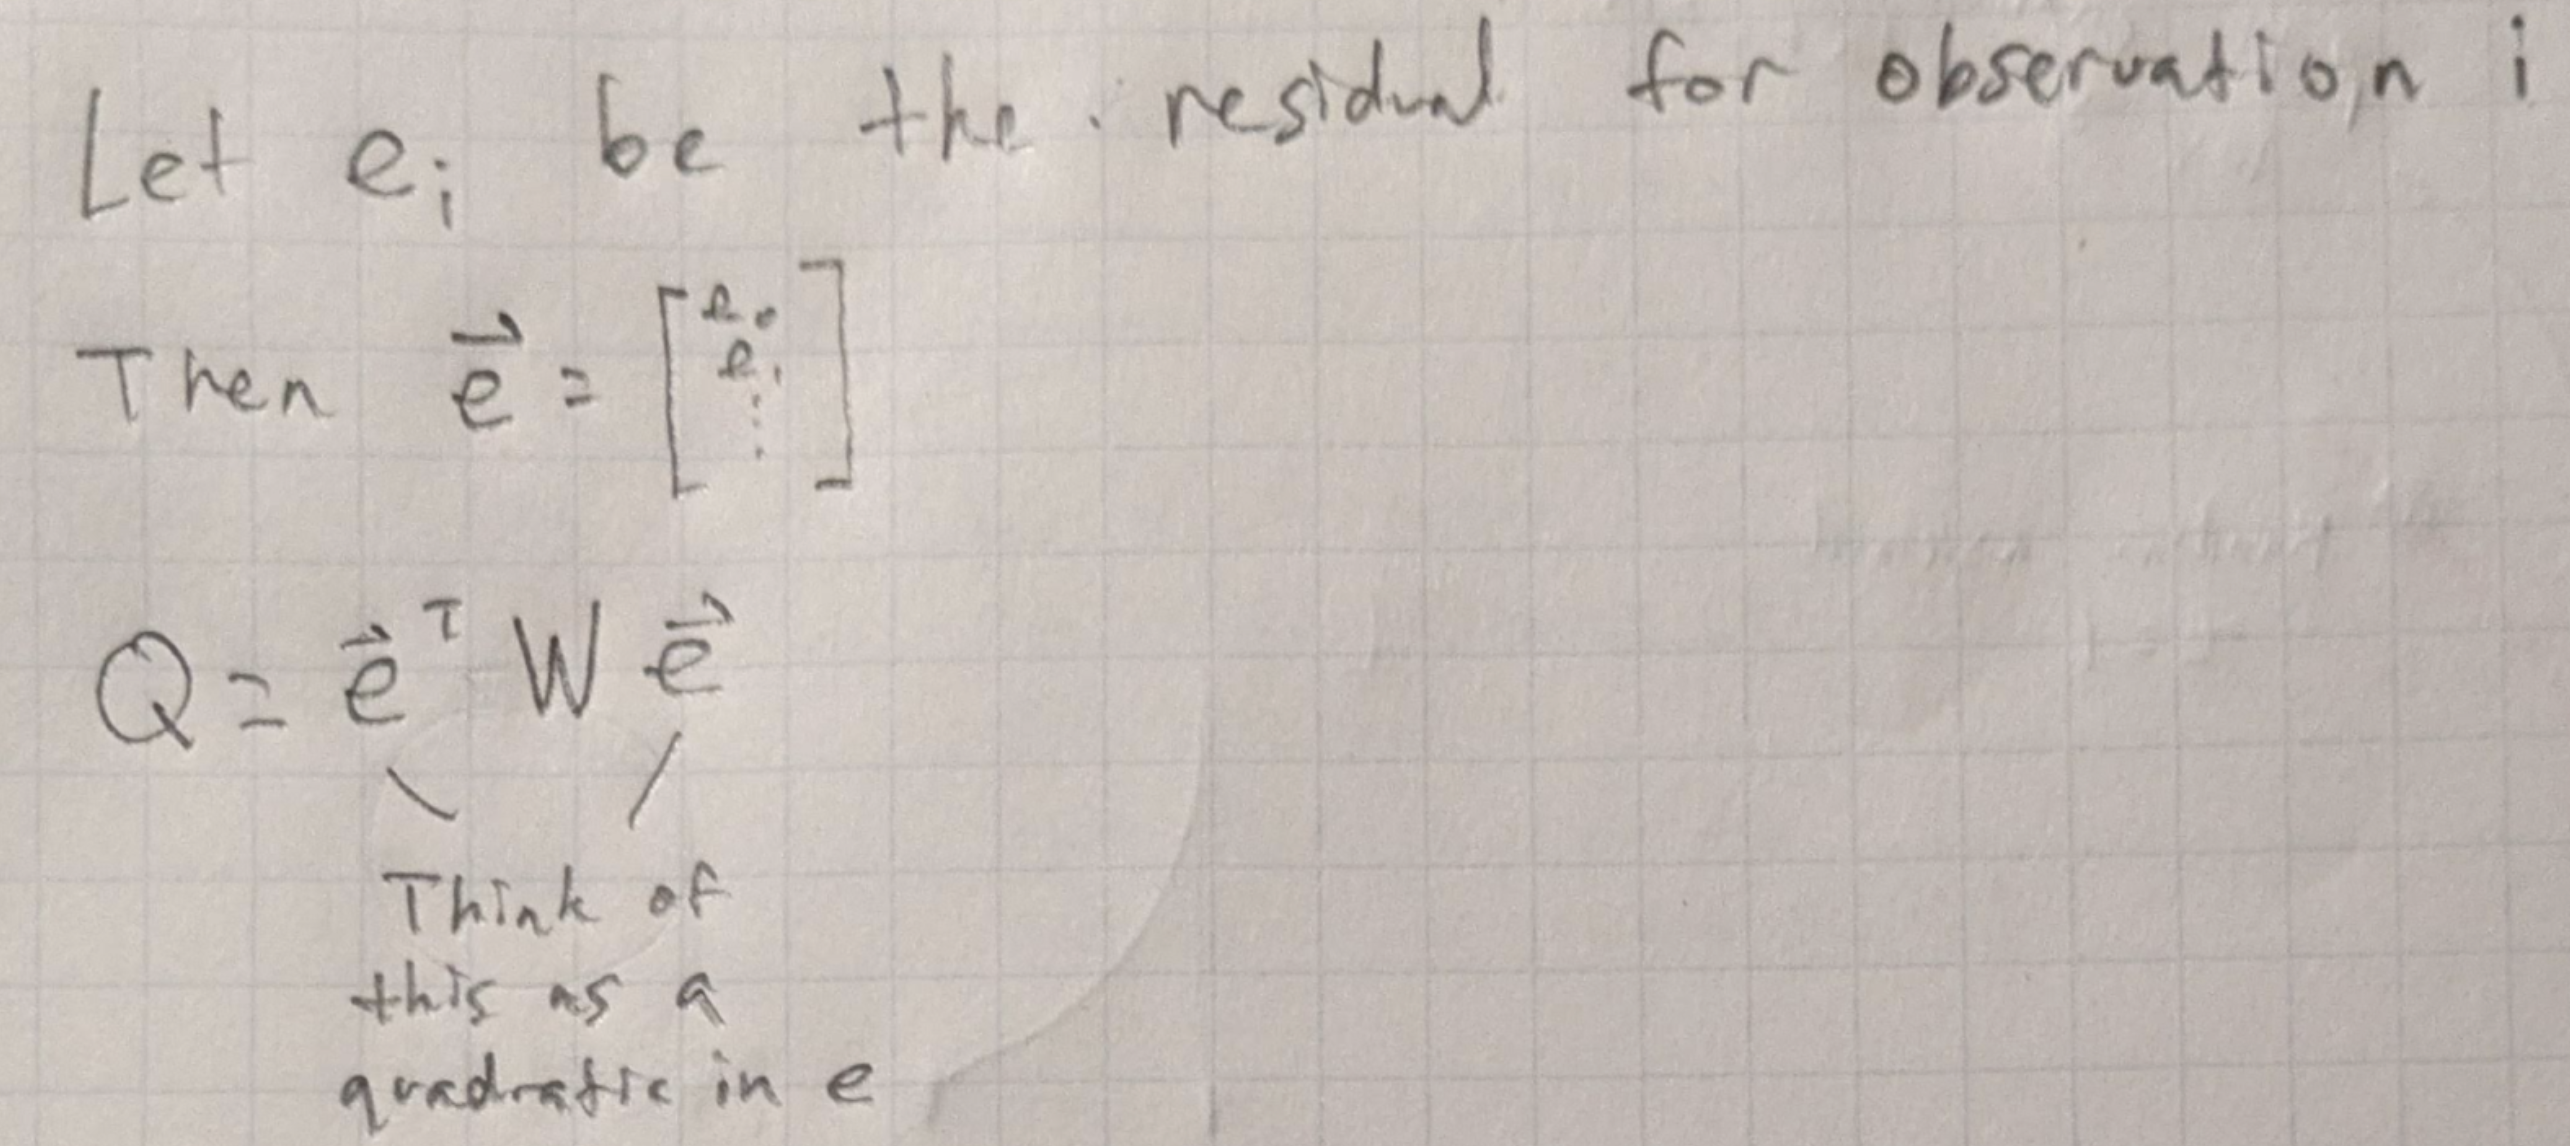 Let eᵢ be the residual for observation i
Then e⃗ = [e₀
e₁
⋮]
Q = e⃗ᵀ W e⃗
Think of
this as a
quadratic in e